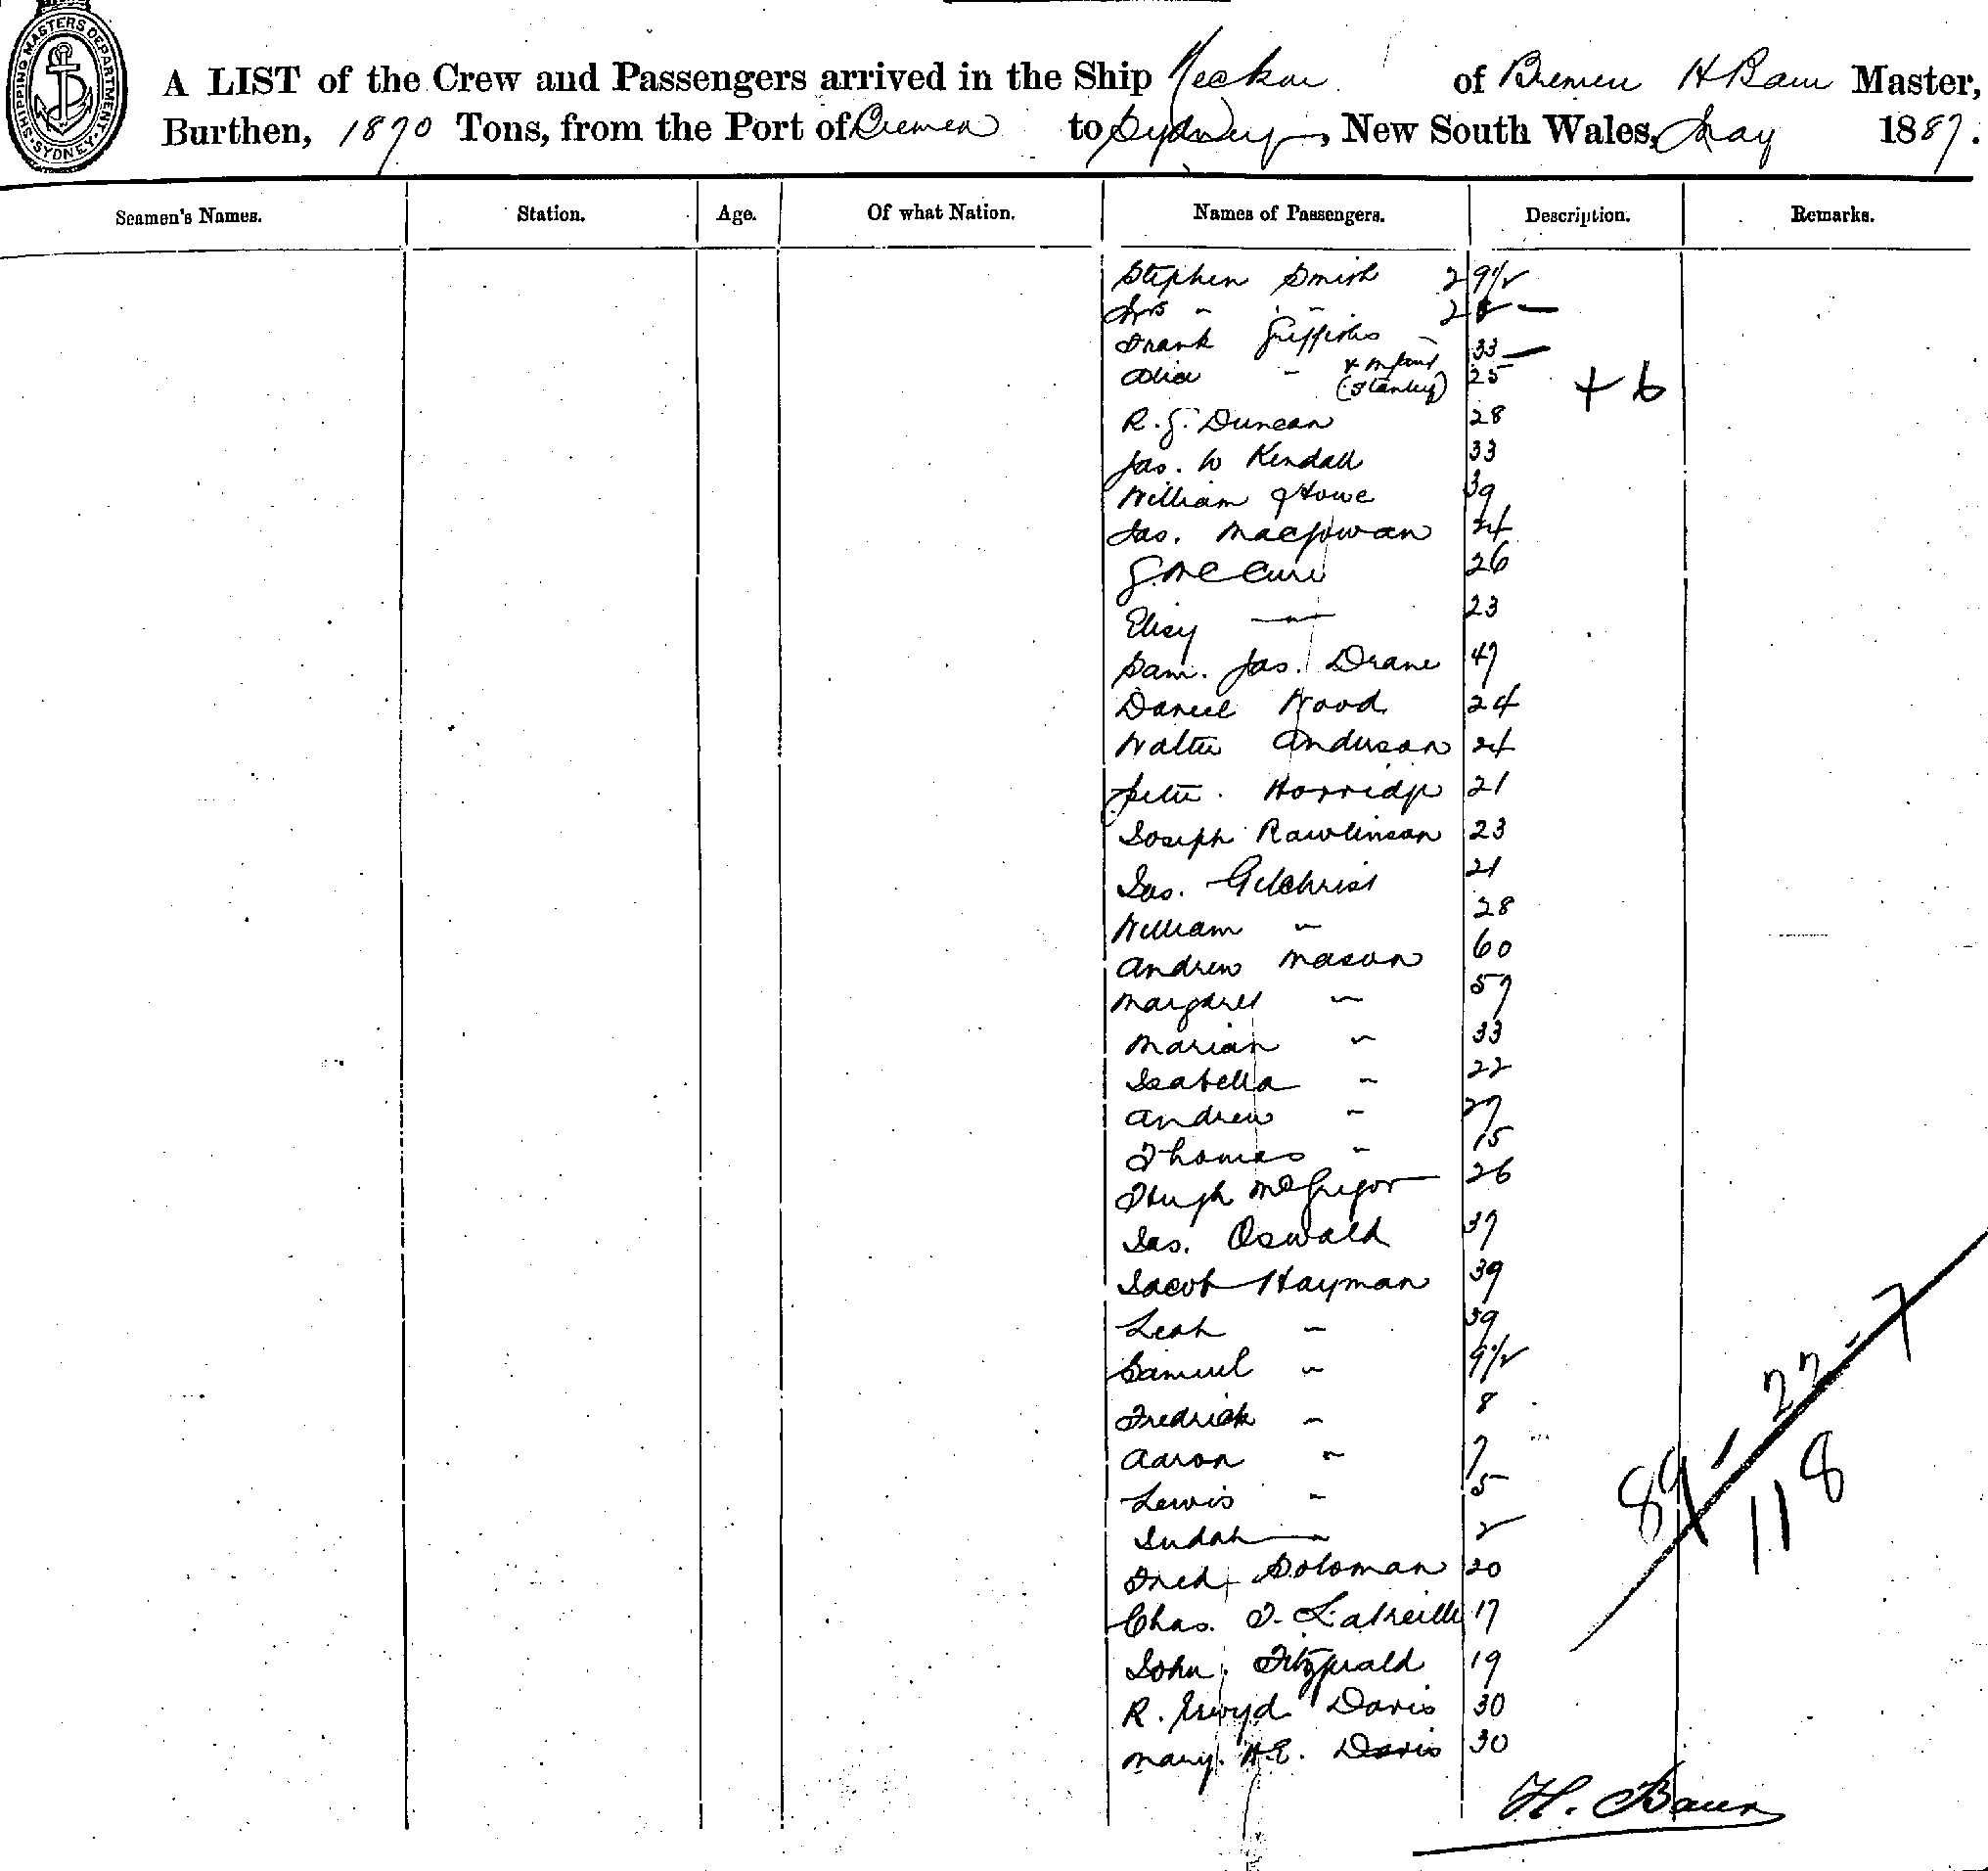 SHIPPING MASTERS DEPARTMENT. SYDNEY.
A LIST of the Crew and Passengers arrived in the Ship Neckar of Bremen H Baur Master,
Burthen, 1870 Tons, from the Port of Bremen to Sydney, New South Wales, May 1887.
Seamen's Names. Station. Age. Of what Nation. Names of Passengers. Description. Remarks.
Stephen Smith 29½
Mrs " " 2
Frank Griffiths 33
Alice " & infant (Stanley) 25 + 6
R. G. Duncan 28
Jas. W Kendall 33
William Howe 39
Jas. MacGowan 24
G. McClure 26
Elisy " 23
Sam. Jas. Drane 47
Daniel Wood 24
Walter Anderson 24
Peter Horridge 21
Joseph Rawlinson 23
Jas. Gilchrist 21
William " 28
Andrew Mason 60
Margaret " 57
Marian " 33
Isabella " 22
Andrew " 27
Thomas " 15
Hugh McGregor 26
Jas. Oswald 37
Jacob Hayman 39
Leah " 39
Samuel " 9½
Fredrick " 8
Aaron " 7
Lewis " 5
Judah " 2
Fred Soloman 20
Chas. T. Latreille 17
John Fitzgerald 19
R. Davis 30
Mary. H.E. Davis 30
89 / 22 / 7
118
H. Baur